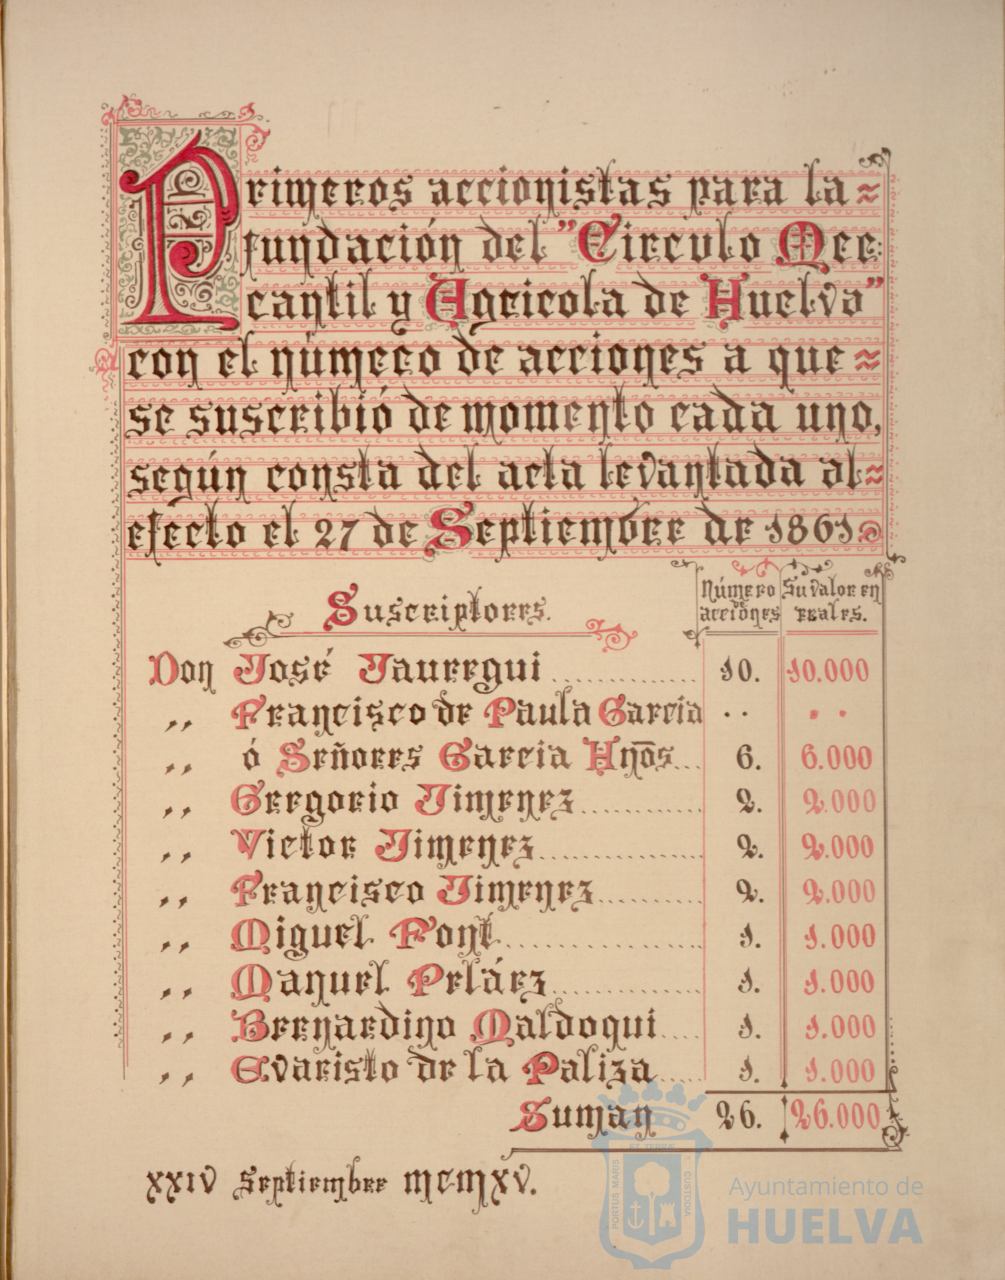 Primeros accionistas para la
fundación del "Circulo Mer-
cantil y Agricola de Huelva"
con el número de acciones a que
se suscribió de momento cada uno,
según consta del acta levantada al
efecto el 27 de Septiembre de 1861.
Suscriptores. Número de acciones Su valor en reales.
Don José Jauregui .............. 10. 10.000
,, Francisco de Paula Garcia .. ..
,, ó Señores Garcia Hnōs... 6. 6.000
,, Gregorio Jimenez............ 2. 2.000
,, Victor Jimenez................ 2. 2.000
,, Francisco Jimenez.......... 2. 2.000
,, Miguel Font.................... 1. 1.000
,, Manuel Peláez................ 1. 1.000
,, Bernardino Maldoqui.... 1. 1.000
,, Evaristo de la Paliza..... 1. 1.000
Suman 26. 26.000
XXIV Septiembre MCMXV.
PORTUS MARIS ET TERRAE CUSTODIA
Ayuntamiento de
HUELVA